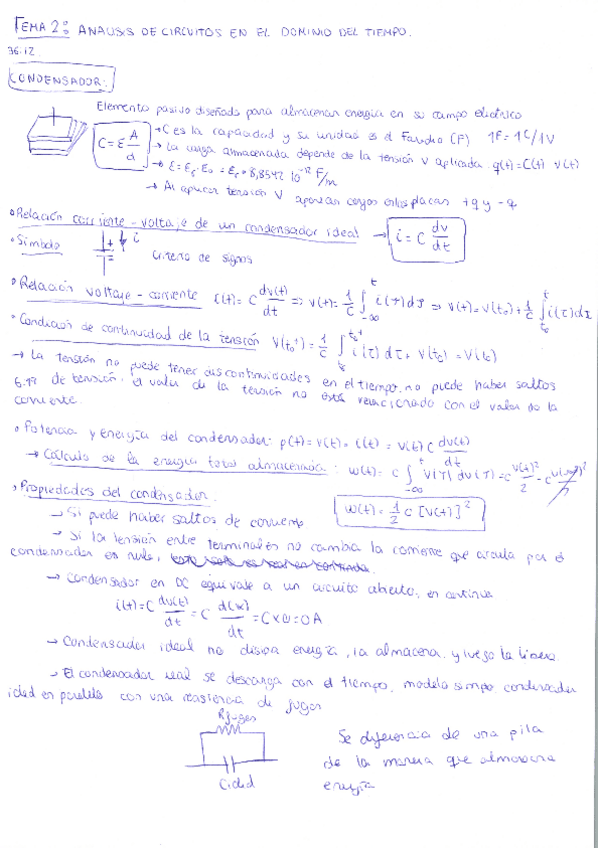 TEMA 2: ANALISIS DE CIRCUITOS EN EL DOMINIO DEL TIEMPO.
36:12
CONDENSADOR:
Elemento pasivo diseñado para almacenar energia en su campo electrico
C = ε A/d
→ C es la capacidad y su unidad es el Faradio (F) 1F = 1C/1V
→ La carga almacenada depende de la tensión V aplicada. q(t) = C(t) v(t)
→ ε = εr · ε0 = εr · 8,8542 10^-12 F/m
→ Al aplicar tensión V aparecen cargas en las placas +q y -q
• Relación corriente - voltaje de un condensador ideal → i = C dv/dt
• Simbolo + i Criterio de signos
• Relación voltaje - corriente i(t) = C dv(t)/dt ⇒ v(t) = 1/C ∫_-∞^t i(τ)dτ ⇒ v(t) = v(t0) + 1/C ∫_t0^t i(τ)dτ
• Condición de continuidad de la tensión V(t0+) = 1/C ∫_t0^t0+ i(τ) dτ + V(t0) = V(t0)
→ La tensión no puede tener discontinuidades en el tiempo, no puede haber saltos
de tensión, el valor de la tensión no está relacionado con el valor de la
corriente.
• Potencia y energía del condensador: p(t) = v(t) · i(t) = v(t) C dv(t)/dt
→ Cálculo de la energia total almacenada: w(t) = C ∫_-∞^t V(τ) dV(τ) = C V(t)²/2 - C V(-∞)²/2
• Propiedades del condensador. w(t) = 1/2 C [V(t)]²
→ Si puede haber saltos de corriente
→ Si la tensión entre terminales no cambia la corriente que circula por el
condensador es nula,
→ Condensador en DC equivale a un circuito abierto, en continua
i(t) = C dv(t)/dt = C d(k)/dt = C x 0 = 0 A
→ Condensador ideal no disipa energía, la almacena y luego la libera.
→ El condensador real se descarga con el tiempo, modelo simpo condensador
ideal en paralelo con una resistencia de fugas
Rfugas
Cideal
Se diferencia de una pila
de la manera que almacena
energía